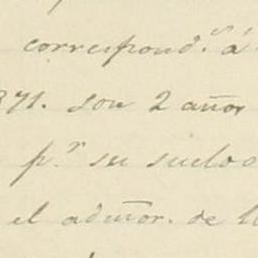 correspond.ᵗᵉ á
871. son 2 años
p.ʳ su sueldo
el admor. de l